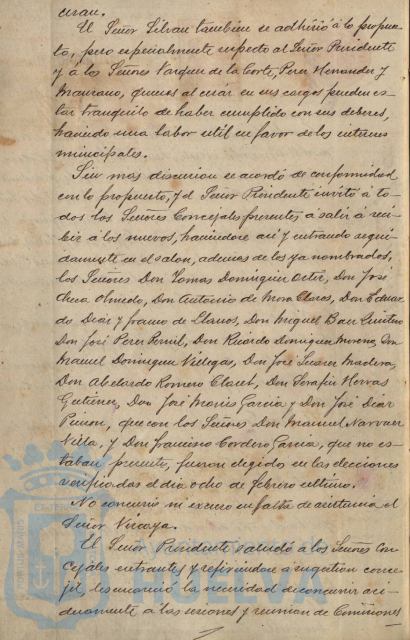 ciran.
El Señor Silvan tambien se adhirió á lo propues-
to, pero especialmente respecto al Señor Presidente
y á los Señores Vazquez de la Corte, Perez Hernandez y
Manzano, quienes al cesar en sus cargos pueden es-
tar tranquilos de haber cumplido con sus deberes,
haciendo una labor util en favor de los intereses
municipales.
Sin mas discusion se acordó de conformidad
con lo propuesto, y el Señor Presidente invitó á to-
dos los Señores Concejales presentes á salir á reci-
bir á los nuevos, haciendose asi y entrando segui-
damente en el salon, ademas de los ya nombrados,
los Señores Don Tomas Dominguez Ortiz, Don José
Checa Olmedo, Don Antonio de Mora Claros, Don Eduar-
do Diaz y Franco de Llanos, Don Miguel Baez Quintero
Don José Perez Don Ricardo Dominguez Moreno, Don
Manuel Dominguez Villegas, Don José Suarez
Don Abelardo Romero Claret, Don Serafin
Gutierrez, Don José Maria Garcia y Don José Diaz
que con los Señores Don Manuel Narvaez
y Don Francisco Cordero Garcia, que no es-
taban presentes, fueron elegidos en las elecciones
verificadas el dia ocho de febrero ultimo.
No concurrió ni excusó su falta de asistencia el
Señor Vizcaya.
El Señor Presidente saludó á los Señores Con-
cejales entrantes, y refiriendose á su gestion conce-
jil, les encareció la necesidad de concurrir asi-
duamente á las sesiones y reunion de Comisiones